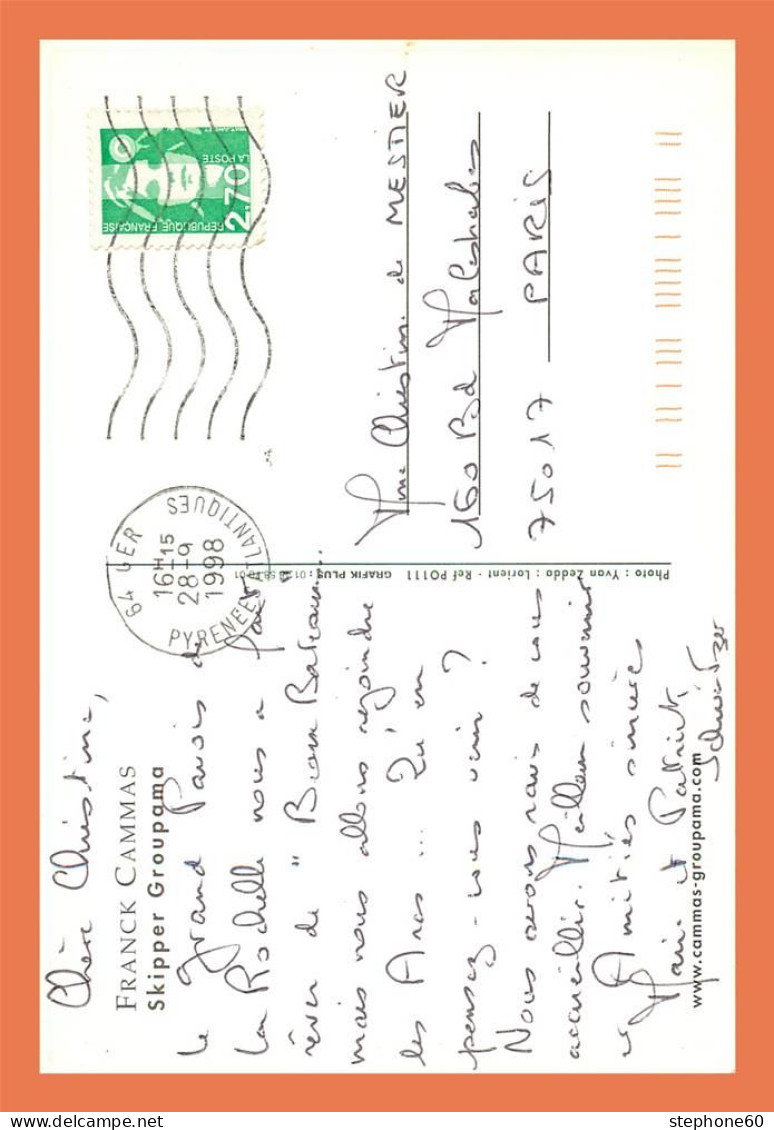 Chère Christine,
FRANCK CAMMAS
Skipper Groupama
Le Grand Pavois de
La Rochelle nous a fait
rêver de "Beaux Bateaux...
mais nous allons rejoindre
les Arcs... Qu'en
pensez-vous venir ?
Nous serons ravis de vous
accueillir. Meilleur souvenir
et Amitiés sincères
Marie et Patrick
Schweitzer
www.cammas-groupama.com
Photo : Yvan Zedda : Lorient - Ref PO111
GRAFIK PLUS :
64 GER
16H15
28-9
1998
PYRENEES ATLANTIQUES
2,70
REPUBLIQUE FRANÇAISE
LA POSTE
Mme Christine de MESTIER
160 Bd Malesherbes
75017 PARIS
stephone60